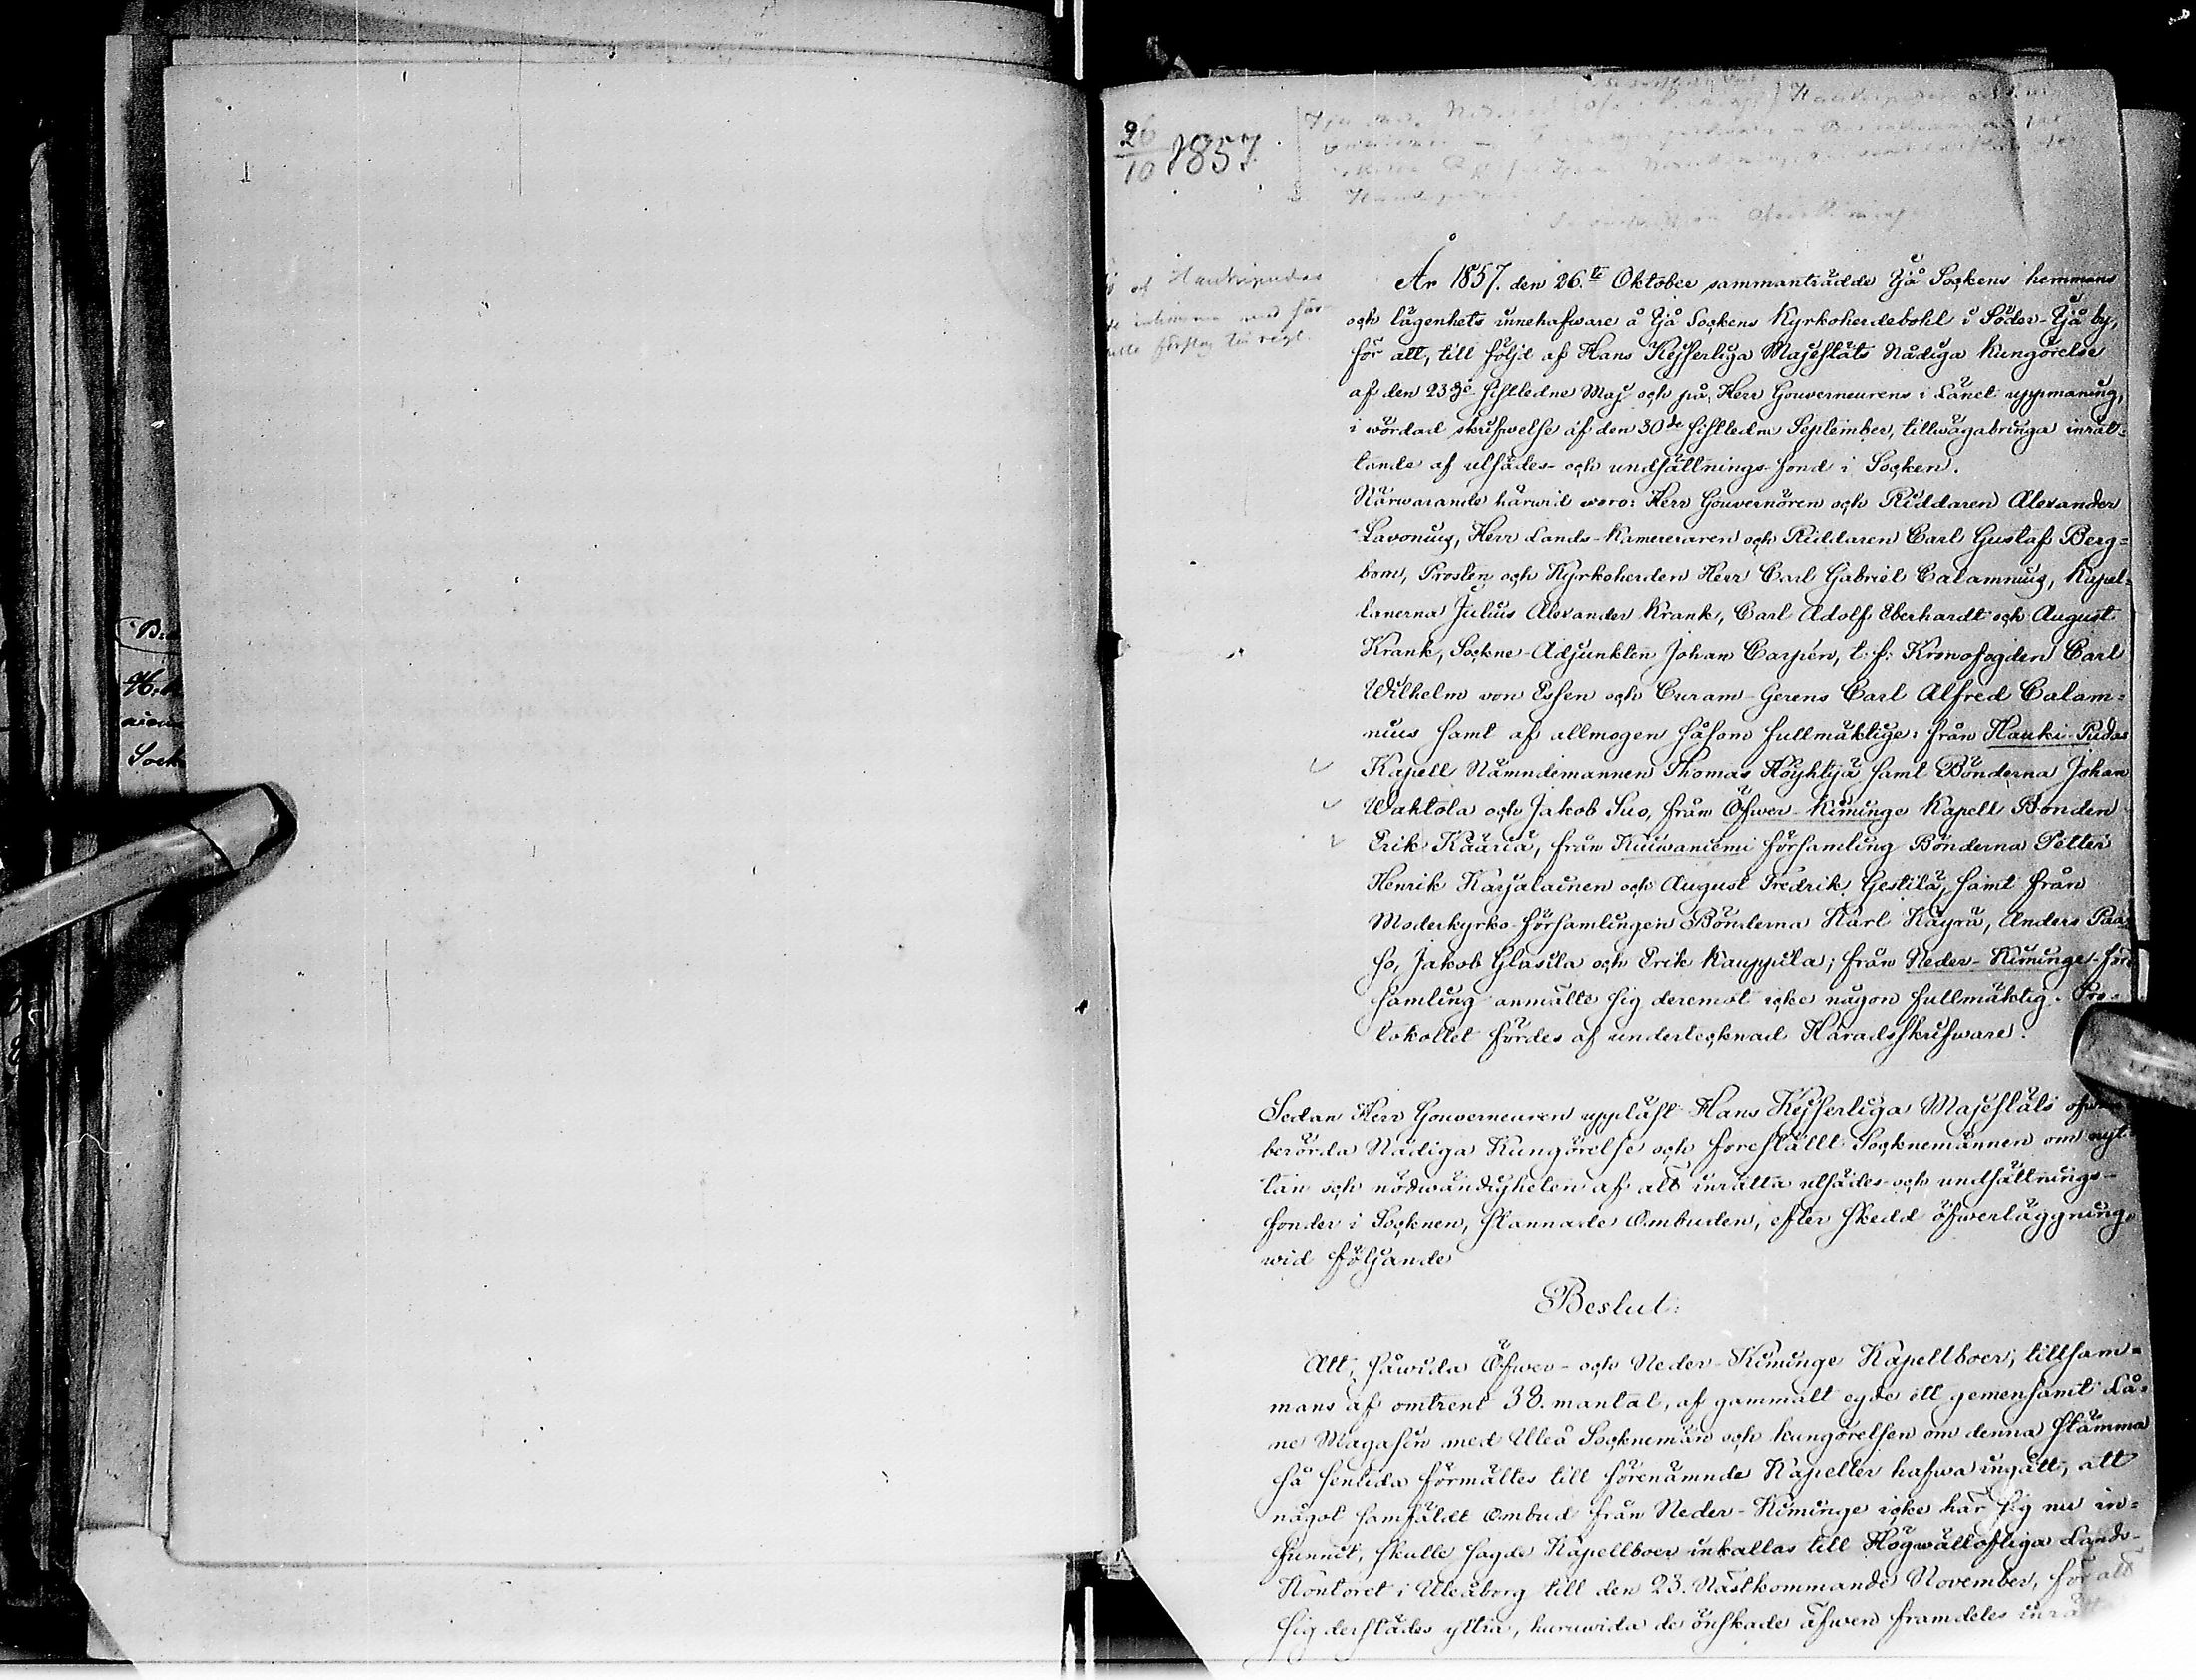 26/10 1857.
af Haukipudas
År 1857. den 26.te October sammanträdde Ijå Sockens hemmans
och lägenhets innehafware å Ijå Sockens Kyrkoherdebohl i Söder-Ijå by,
för att, till följd af Hans Kejserliga Majestäts Nådiga kungörelse
af den 23de sistledne Maj och på Herr Gouverneurens i Länet uppmaning,
i wördad skrifwelse af den 30de sistledne September, tillwägabringa inrät-
tande af utsädes- och undsättnings-fond i Socken.
Närwarande härwid woro: Herr Gouvernören och Riddaren Alexander
Lavonius, Herr Lands-Kamereraren och Riddaren Carl Gustaf Berg-
bom, Prosten och Kyrkoherden Herr Carl Gabriel Calamnius, Kapel-
lanerna Julius Alexander Krank, Carl Adolf Eberhardt och August
Krank, Sockne-Adjunkten Johan Carpén, t: f: Kronofogden Carl
Wilhelm von Essen och Curam-Gerens Carl Alfred Calam-
nius samt af allmogen såsom fullmäktige: från Hauki-Pudas
Kapell Nämndemannen Thomas Höyhtyä samt Bönderna Johan
Wahtola och Jakob Suo, från Öfwer-Kiminge Kapell Bonden
Erik Kääriä, från Kuiwaniemi församling Bönderna Petter
Henrik Karjalainen och August Fredrik Gestilä, samt från
Moderkyrko-församlingen Bönderna Karl Käyrä, Anders Paa-
so, Jakob Glasila och Erik Kauppila; från Neder-Kiminge för-
samling anmälte sig deremot icke någon fullmäktig. Pro-
tokollet fördes af undertecknad Häradsskrifware.
Sedan Herr Gouverneuren uppläst Hans Kejserliga Majestäts ofwan-
berörda Nådiga Kungörelse och föreställt Socknemännen om nyt-
tan och nödwändigheten af att inrätta utsädes- och undsättnings-
fonder i Socknen, stannade Ombuden, efter skedd öfwerläggning,
wid följande
Beslut:
Att, såwida Öfwer- och Neder-Kiminge Kapellboer, tillsam-
mans af omtrent 38. mantal, af gammalt egde ett gemensamt Lå-
ne Magasin med Uleå Socknemän och kungörelsen om denna stämma
så sentida förmältes till förenämnde Kapeller hafwa ingått, att
något samfäldt Ombud från Neder-Kiminge icke här sig nu in-
funnit, skulle sagde Kapellboer inkallas till Högwällofliga Lands-
Kontoret i Uleåborg till den 23. Nästkommande November, för att
sig derstädes yttra, huruwida de önskade äfwen framdeles